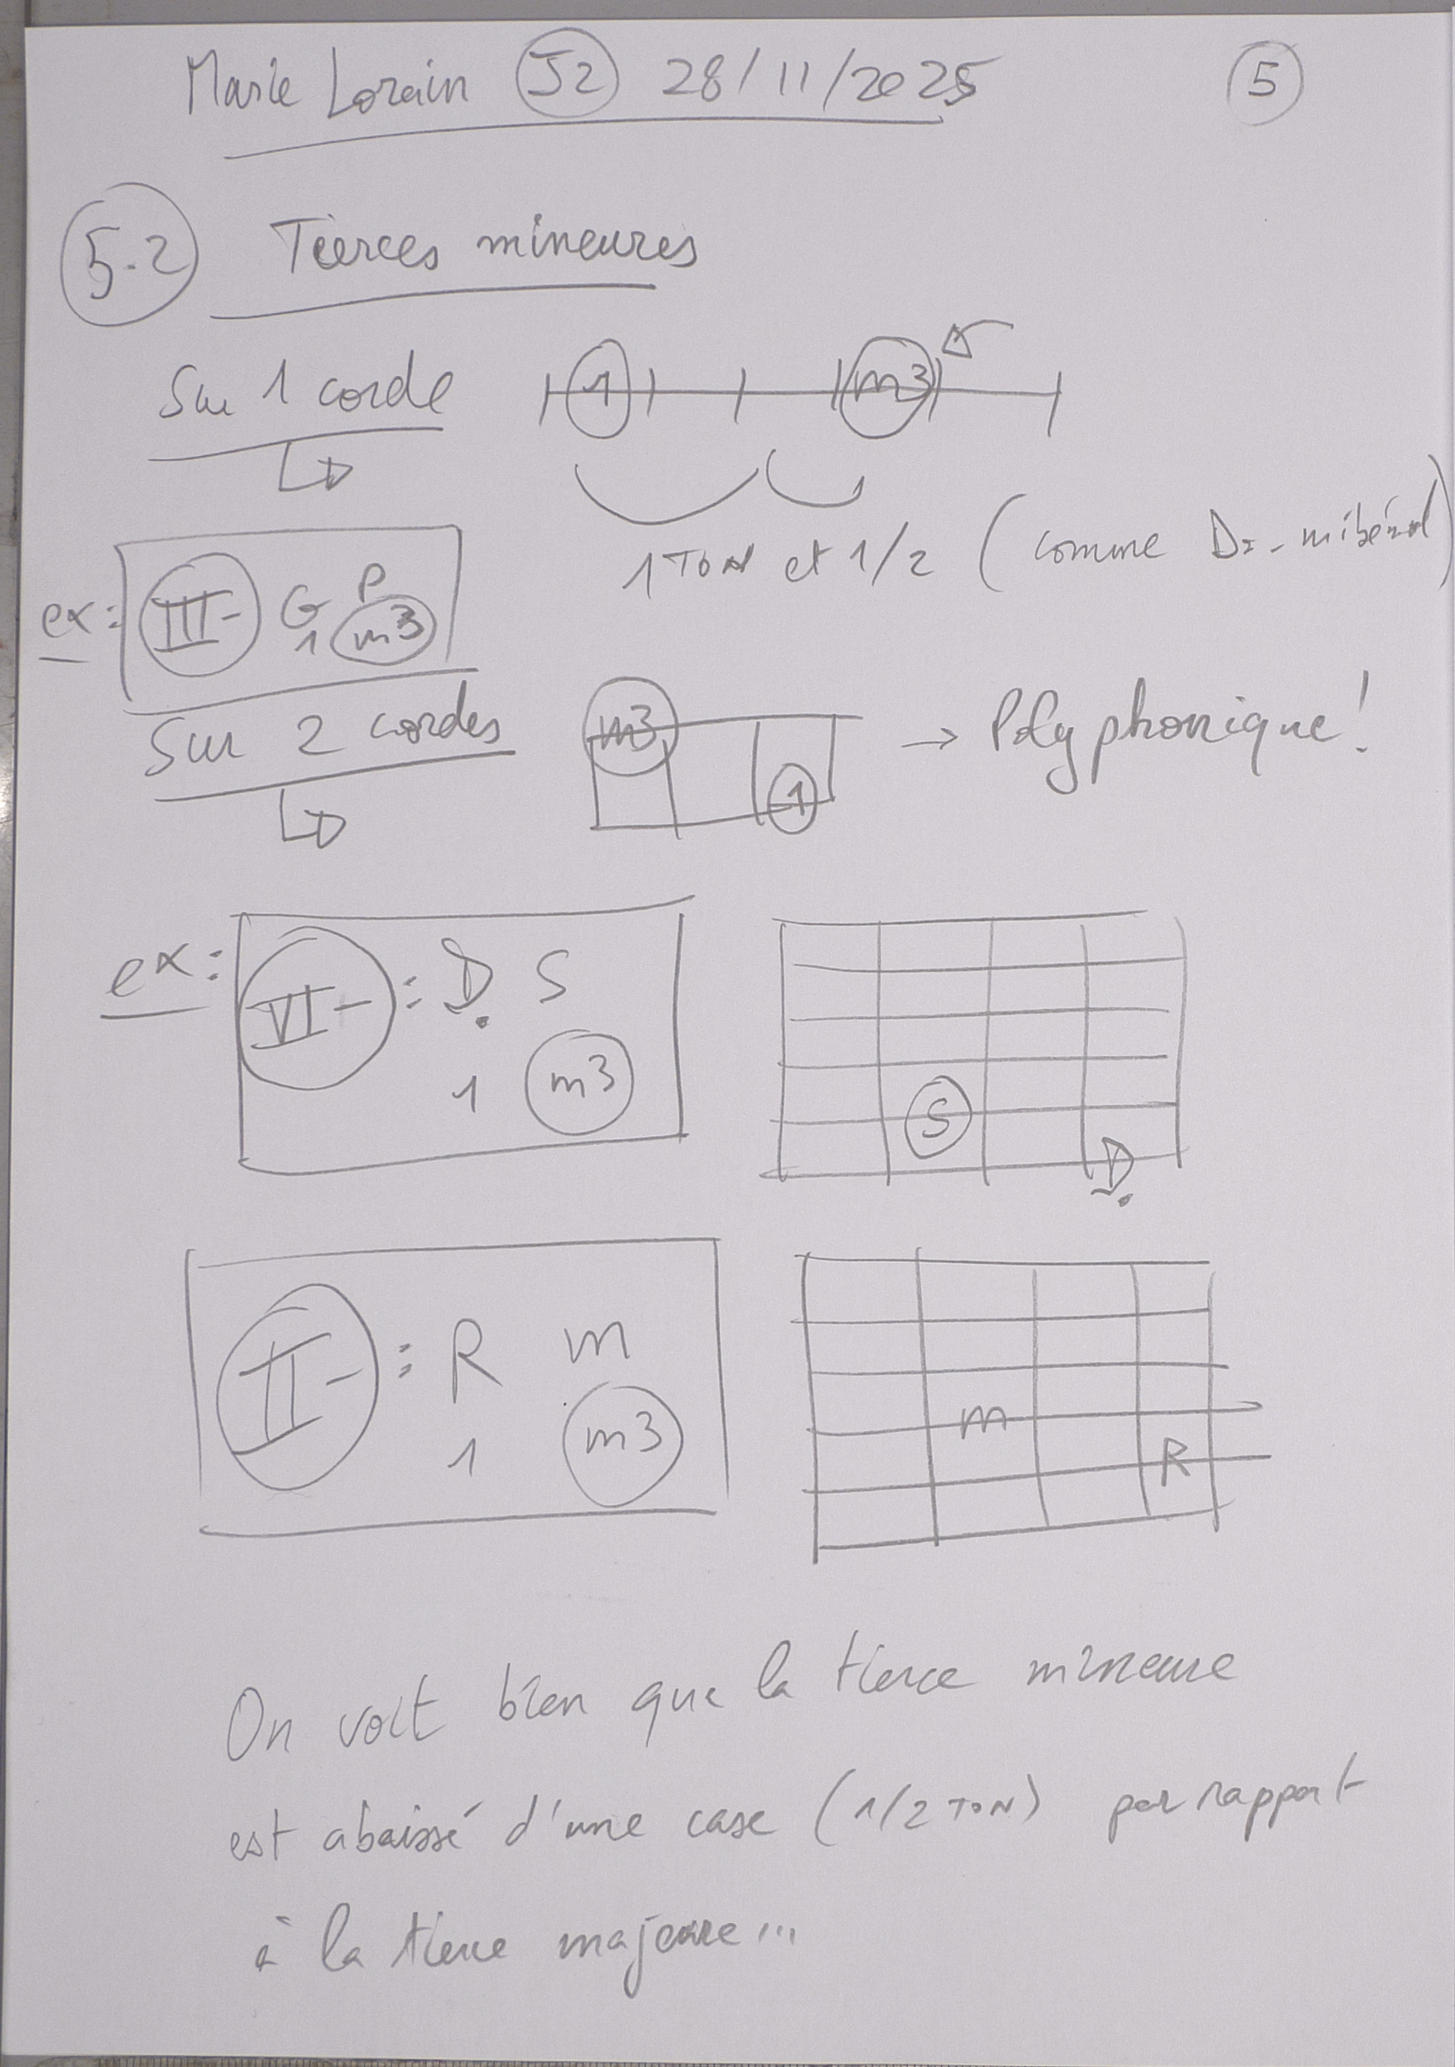 Marie Lorain J2 28/11/2025 5
5.2 Tierces mineures
Sur 1 corde 1 m3
1 TON et 1/2 (comme Do - mi bémol)
ex: III- G P
1 m3
Sur 2 cordes m3 1 → Polyphonique!
ex: VI- : D. S
1 m3
S
D.
II- : R m
1 m3
m
R
On voit bien que la tierce mineure
est abaissé d'une case (1/2 TON) par rapport
à la tierce majeure...